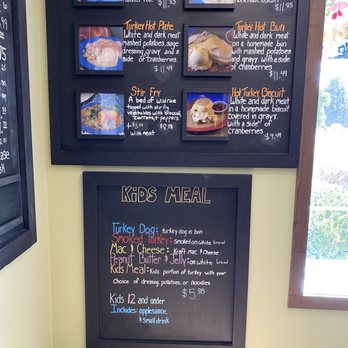 $11.95
Turkey Hot Plate
White and dark meat
mashed potatoes, sage
dressing gravy and a
side of cranberries
$11.49
Turkey Hot Bun
White and dark meat
in a homemade bun
with mashed potatoes
covered in gravy
with a side of
cranberries
$11.49
Stir Fry
A bed of wild rice
topped with stir-fry
vegetables with broccoli
carrots, + peppers
with meat
Hot Turkey Biscuit
White and dark meat
in a homemade biscuit
covered in gravy
with a side of
cranberries
$9.49
KIDS MEAL
Turkey Dog: turkey dog in bun
Smoked Turkey: Smoked on White bread
Mac & Cheese: Kraft Mac & Cheese
Peanut Butter & Jelly: on White bread
Kids Meal: Kids portion of turkey with your
choice of dressing, potatoes, or noodles
$5.98
Kids 12 and under
Includes: applesauce,
& small drink